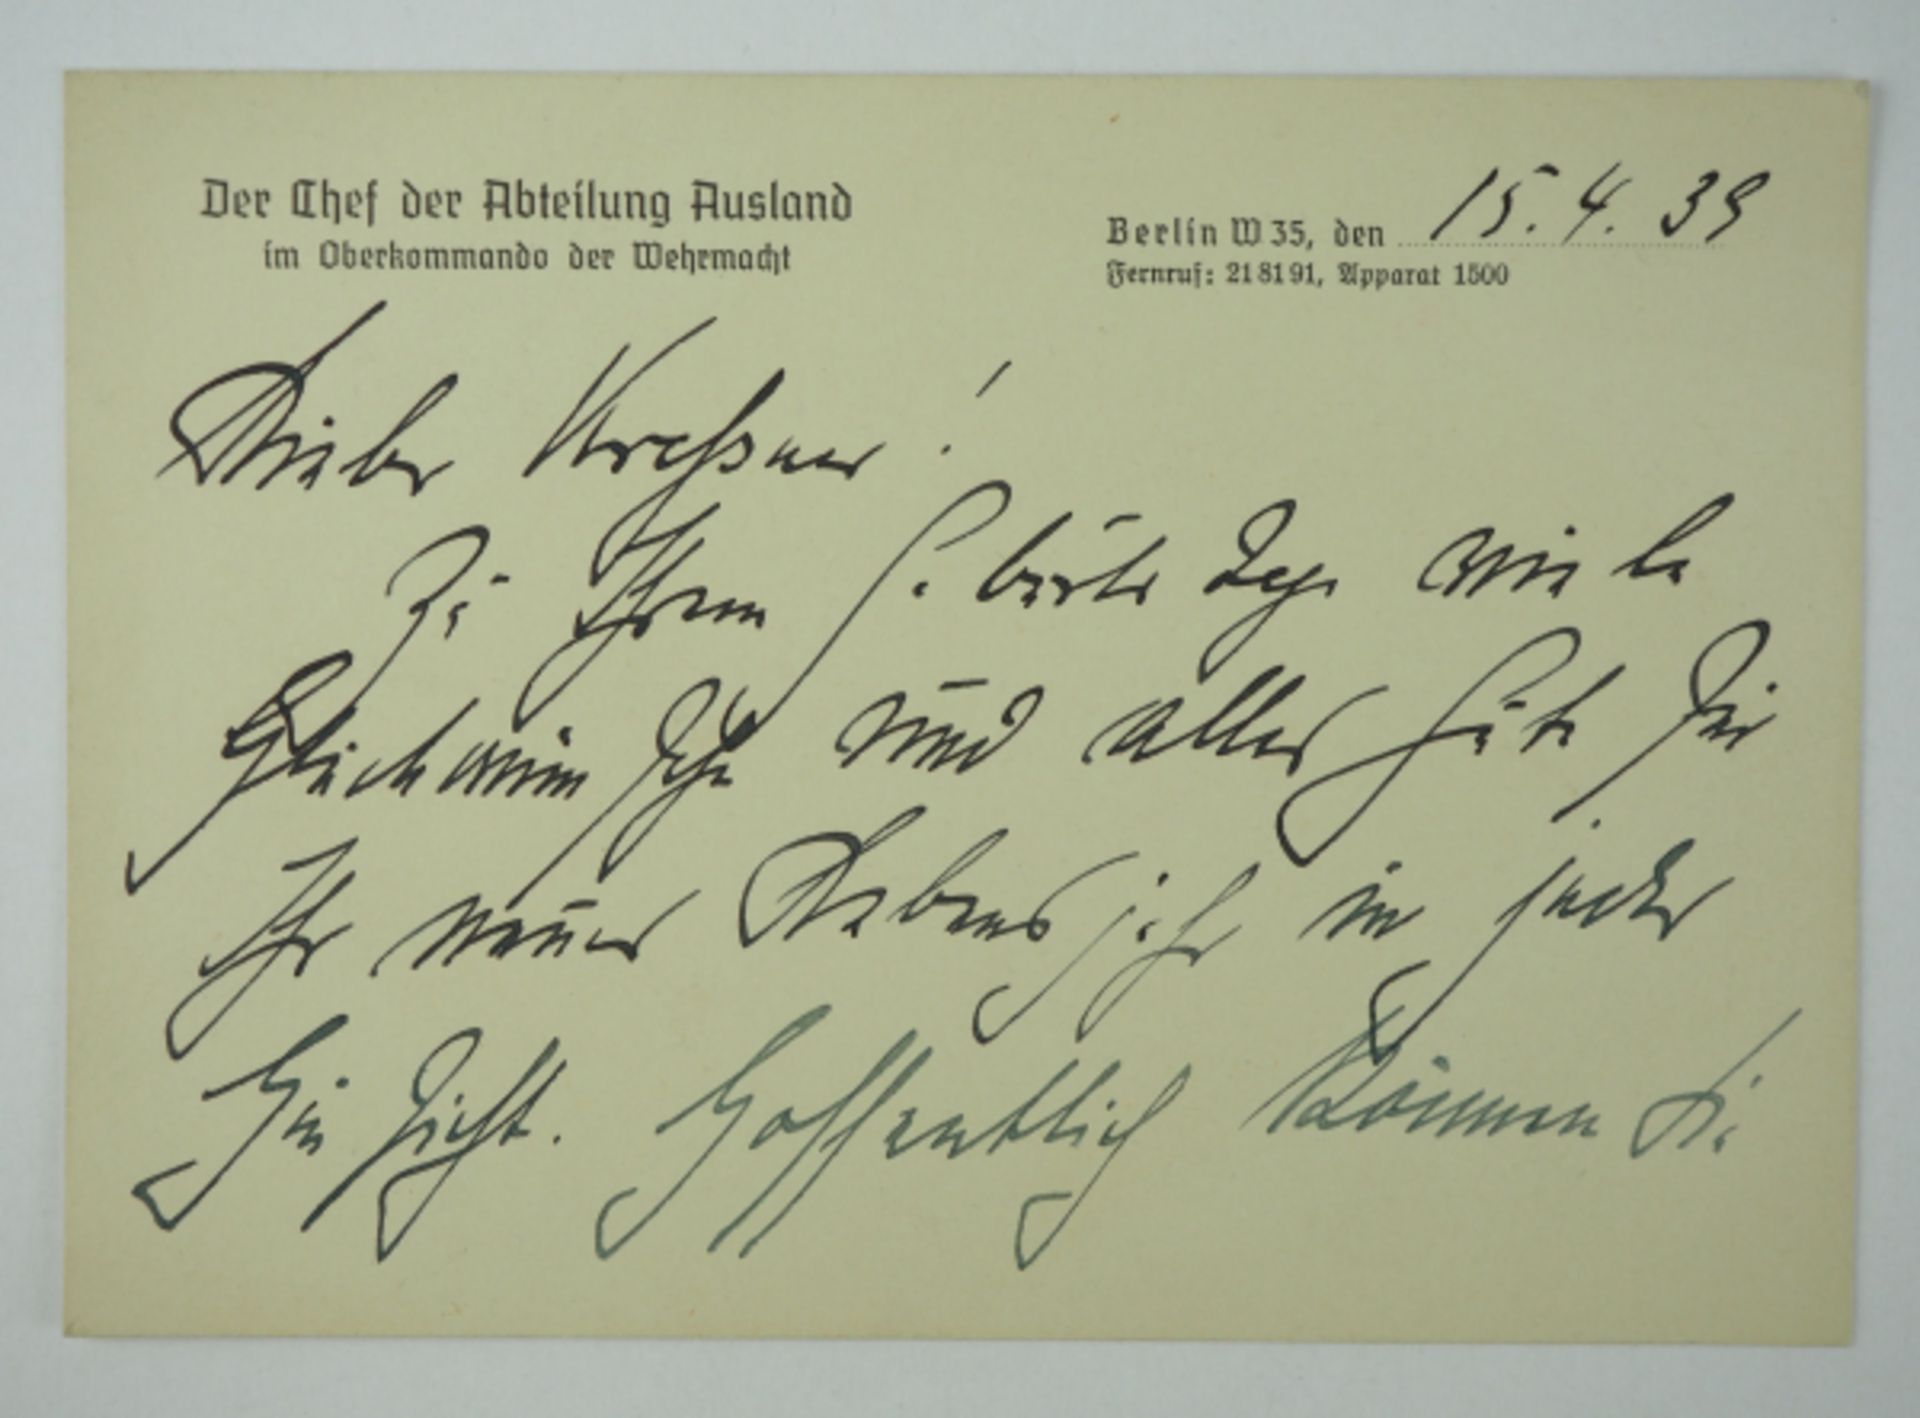 Der Chef der Abteilung Ausland
im Oberkommando der Wehrmacht
Berlin W 35, den 15.4.39
Fernruf: 21 81 91, Apparat 1500
Lieber Kreßner!
Zu Ihrem Geburtstage viele
Glückwünsche und alles Gute für
Ihr neues Lebensjahr in jeder
Hinsicht. Hoffentlich können Sie